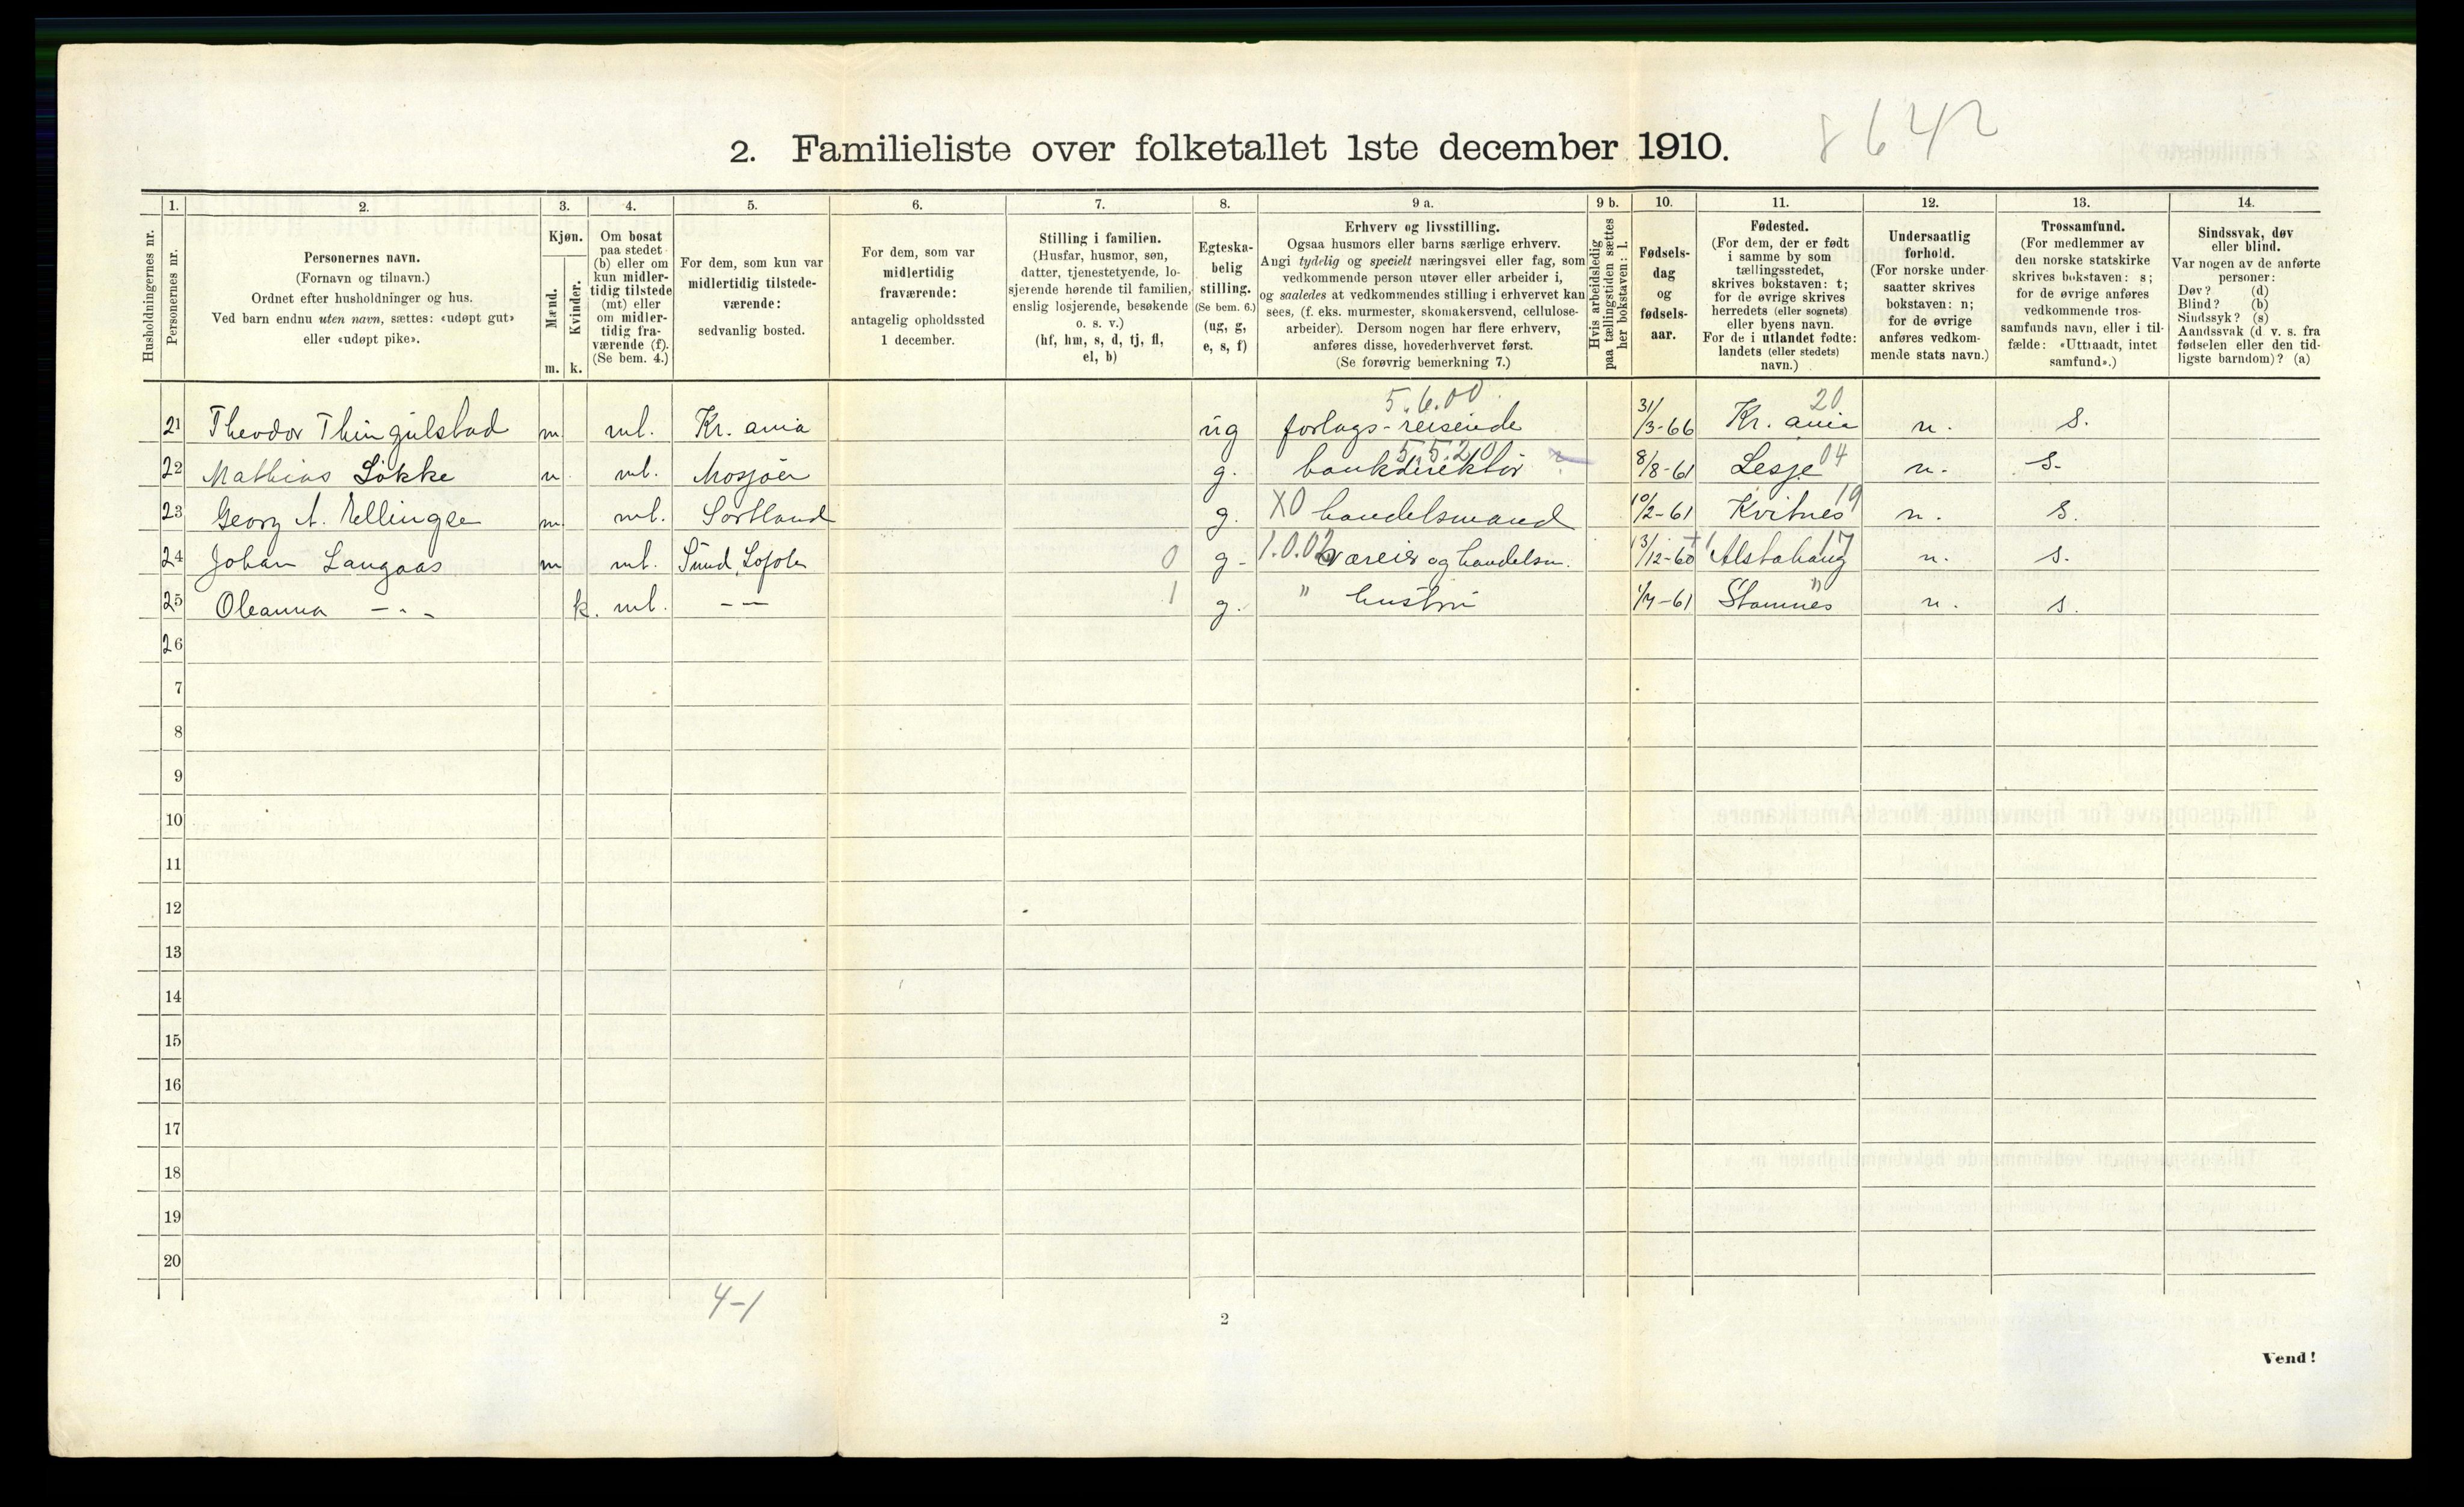 8642
2. Familieliste over folketallet 1ste december 1910.
1. 2. 3. 4. 5. 6. 7. 8. 9 a. 9 b. 10. 11. 12. 13. 14.
Husholdningernes nr.
Personernes nr.
Personernes navn.
(Fornavn og tilnavn.)
Ordnet efter husholdninger og hus.
Ved barn endnu uten navn, sættes: «udøpt gut»
eller «udøpt pike».
Kjøn.
Mænd.
Kvinder.
m. k.
Om bosat
paa stedet
(b) eller om
kun midler-
tidig tilstede
(mt) eller
om midler-
tidig fra-
værende (f).
(Se bem. 4.)
For dem, som kun var
midlertidig tilstede-
værende:
sedvanlig bosted.
For dem, som var
midlertidig
fraværende:
antagelig opholdssted
1 december.
Stilling i familien.
(Husfar, husmor, søn,
datter, tjenestetyende, lo-
sjerende hørende til familien,
enslig losjerende, besøkende
o. s. v.)
(hf, hm, s, d, tj, fl,
el, b)
Egteska-
belig
stilling.
(Se bem. 6.)
(ug, g,
e, s, f)
Erhverv og livsstilling.
Ogsaa husmors eller barns særlige erhverv.
Angi tydelig og specielt næringsvei eller fag, som
vedkommende person utøver eller arbeider i,
og saaledes at vedkommendes stilling i erhvervet kan
sees, (f. eks. murmester, skomakersvend, cellulose-
arbeider). Dersom nogen har flere erhverv,
anføres disse, hovederhvervet først.
(Se forøvrig bemerkning 7.)
Hvis arbeidsledig
paa tællingstiden sættes
her bokstaven: l.
Fødsels-
dag
og
fødsels-
aar.
Fødested.
(For dem, der er født
i samme by som
tællingsstedet,
skrives bokstaven: t;
for de øvrige skrives
herredets (eller sognets)
eller byens navn.
For de i utlandet fødte:
landets (eller stedets)
navn.)
Undersaatlig
forhold.
(For norske under-
saatter skrives
bokstaven: n;
for de øvrige
anføres vedkom-
mende stats navn.)
Trossamfund.
(For medlemmer av
den norske statskirke
skrives bokstaven: s;
for de øvrige anføres
vedkommende tros-
samfunds navn, eller i til-
fælde: «Uttraadt, intet
samfund».)
Sindssvak, døv
eller blind.
Var nogen av de anførte
personer:
Døv? (d)
Blind? (b)
Sindssyk? (s)
Aandssvak (d. v. s. fra
fødselen eller den tid-
ligste barndom)? (a)
5.6.00 20
21 Theodor Thingulstad m mt. Kr. ania ug forlags-reisende 31/3-66 Kr. ania n. s.
5.5.20 04
22 Mathias Løkke m mt. Mosjøen g. bankdirektør 8/8-61 Lesje n. s.
23 Georg A. Ellingse m mt. Sortland g. X0 handelsmand 10/2-61 Kvitnes 19 n. s.
24 Johan Langaas m mt. Sund, Lofoten 0 g. 1.0.02 væreier og handelsm. 13/12-60 Alstahaug 17 n. s.
25 Oleanna -"- k. mt. -- 1 g. " hustru 1/7-61 Stamnes " n. s.
26
7
8
9
10
11
12
13
14
15
16
17
18
19
20
4-1
2
Vend!